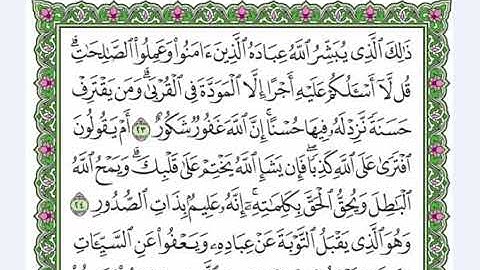 ذَٰلِكَ ٱلَّذِى يُبَشِّرُ ٱللَّهُ عِبَادَهُ ٱلَّذِينَ ءَامَنُوا۟ وَعَمِلُوا۟ ٱلصَّـٰلِحَـٰتِ ۗ
قُل لَّآ أَسْـَٔلُكُمْ عَلَيْهِ أَجْرًا إِلَّا ٱلْمَوَدَّةَ فِى ٱلْقُرْبَىٰ ۗ وَمَن يَقْتَرِفْ
حَسَنَةً نَّزِدْ لَهُۥ فِيهَا حُسْنًا ۚ إِنَّ ٱللَّهَ غَفُورٌ شَكُورٌ ٢٣ أَمْ يَقُولُونَ
ٱفْتَرَىٰ عَلَى ٱللَّهِ كَذِبًا ۖ فَإِن يَشَإِ ٱللَّهُ يَخْتِمْ عَلَىٰ قَلْبِكَ ۗ وَيَمْحُ ٱللَّهُ
ٱلْبَـٰطِلَ وَيُحِقُّ ٱلْحَقَّ بِكَلِمَـٰتِهِۦٓ ۚ إِنَّهُۥ عَلِيمٌۢ بِذَاتِ ٱلصُّدُورِ ٢٤
وَهُوَ ٱلَّذِى يَقْبَلُ ٱلتَّوْبَةَ عَنْ عِبَادِهِۦ وَيَعْفُوا۟ عَنِ ٱلسَّيِّـَٔاتِ